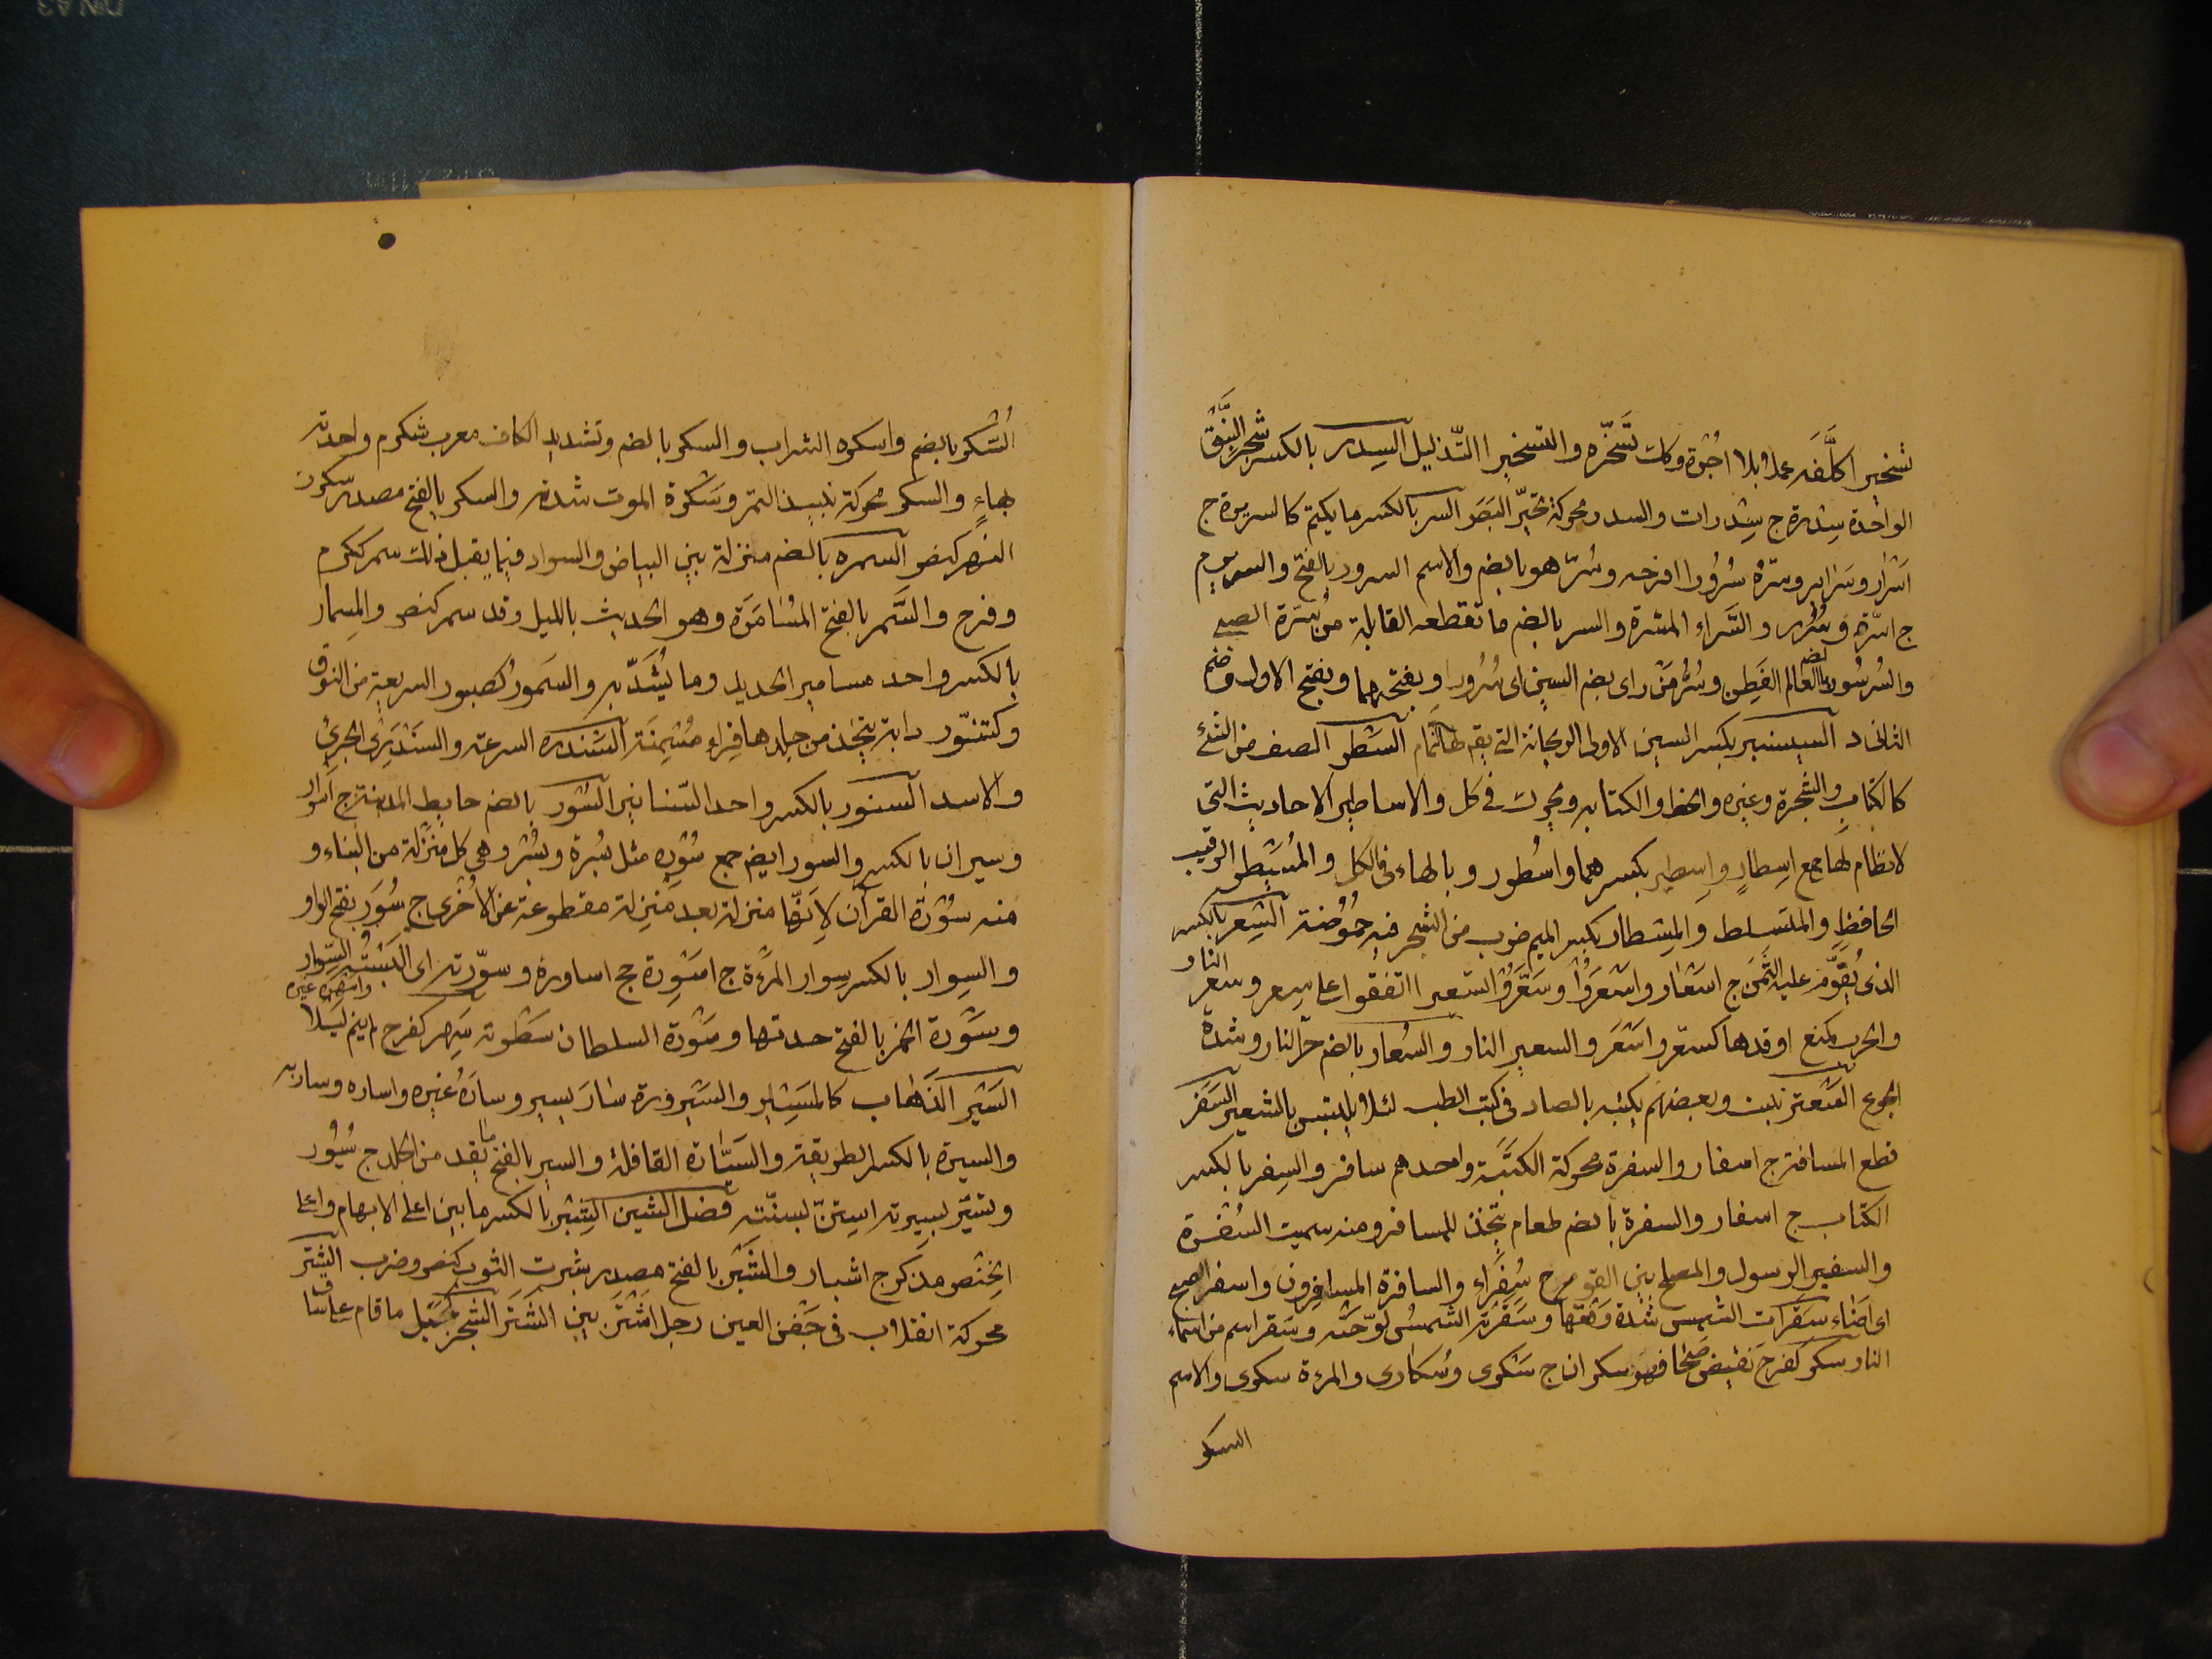 تسخيرا كلَّفَه عملا بلا اجرة وكك تسَخّره والتسخير التّذليل السِدر بالكسر شجر النَّبَق
الواحدة سِدرة ج سِدرات والسدر محركة تحيّر البَصَر السر بالكسر ما يكتم كالسريرة ج
اسْرار وسَراير وسَرَّه سُرُورا افرحه وسُرّ هو بالضم والاسم السرور بالفتح والسرير م
ج اسرّة وسُرُر والسَّراء المسرة والسر بالضم ما تقطعه القابلة من سُرّة الصبي
والسُرسُور بالضم العالم الفَطِن وسُرَّ مَنْ راى بضم السين اى سُرُورا وبفتحهما وبفتح الاول وضم
الثانى د السيسنبر بكسر السين الاولى الريحانة التى يقم لها النمام السَطر الصف من الشئ
كالكتاب والشجرة وغيره والخط والكتابه ويحرك فى كل والاساطير الاحاديث التى
لا نظام لها جمع اسِطارٍ واِسطِير بكسرهما واسُطور وبالهاء فى الكل والمُسَيطر الرقيب
الحافظ والمتسلط والمِسطار بكسر الميم ضرب من الشجر فيه حُمُوضة السِعر بالكسر
الذى يُقوَّم عليه الثَّمَن ج اسْعار واسْعَرُوا وسَعَّرُوا تسعيرا اتفقوا على سِعر وسعر النار
والحرب كمنع اوقدها كسعّر واسْعَر والسعير النار والسُعار بالضم حرّ النار وشدة
الجوع السَعتر نبت وبعضهم يكتبه بالصاد فى كتب الطب لئلا يلتبس بالشعير السَفَر
قطع المسافة ج اسفار والسفرة محركة الكتَبَة واحدهم سافر والسِفر بالكسر
الكتاب ج اسفار والسفرة بالضم طعام يتّخذ للمسافر ومنه سميت السُفرة
والسفير الرسول والمصلح بين القوم ج سُفَراء والسافرة المسافرون واسفر الصبح
اى اضاء سَقَرات الشمس شدة وَقْعِها وسَقَرَته الشمسُ لوّحَته وسَقر اسم من اسماء
النار سكر كفرح نقيض صَحا فهو سكران ج سَكْرى وسُكارى والمرءة سكرى والاسم
السكر
السُكر بالضم واسكره الشراب والسكر بالضم وتشديد الكاف معرب شكر م واحدته
بهاءٍ والسكر محركة نبيذ التمر وسَكْرة الموت شدته والسكر بالفتح مصدر سكرت
النهر كنصر السمره بالضم منزلة بين البياض والسواد فيما يقبل ذلك سمر ككرم
وفرح والسَّمر بالفتح المُسَامَرَة وهو الحديث بالليل وقد سمر كنصر والمِسمار
بالكسر واحد مسامير الحديد وما يُشَدّ به والسَمورُ كصبور السريعة من النوق
وكتنّور دابة يتخذ من جلدها فِراء مثمِنَة السَندره السرعة والسَنْدَرِى الجرئ
والاسد السنور بالكسر واحد السّنانير السُور بالضم حايط المدينة ج اَسوار
وسيران بالكسر والسور ايضم جمع سُوْره مثل بُسرة وبُسْر وهى كل منْزِلة من البناء و
منه سُوْرة القرآن لِاَنّها منزلة بعد منزلة مقطوعة عن الاُخْرى ج سُوَر بفتح الواو
والسِوار بالكسر سِوار المرْءَة ج اسْوِرة جج اساورة وسوّرته اى البَسْتُه السِوار
وسَوْرة الخمر بالفتح حدتها وسَوْرة السلطان سَطوته سَهر كفرح لم ينم ليَلًا واسْهَرَه غيره
السَيْر الذَهاب كالمَسِير والسَيْرورة سَارَ يسير وسارَهُ غيره واساره وسار به
والسيرة بالكسر الطريقة والسَيّارة القافلة والسير بالفتح ما يقد من الجلد ج سُيُور
وتسَيّر بسيرته استنّ بسنّتِه فصل الشين الشِبْر بالكسر ما بين اعلى الابهام واعلى
الخِنْصِر مذكر ج اشبار والشَبْر بالفتح مصدر شبرت الثوب كنصر وضرب الشتَر
محركة انقلاب فى جَفن العين رجل اشْتَر بين الشَتَر الشجر كجَبَل ما قام على ساق